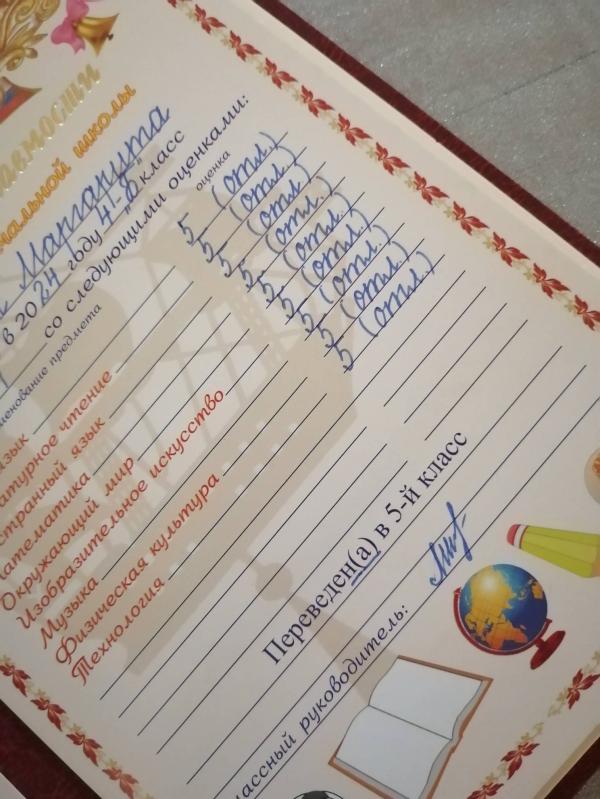 аемости
чальной школы
Маргарита
в 2024 году 4-"В" класс
со следующими оценками:
менование предмета оценка
язык 5 (отл.)
атурное чтение 5 (отл.)
странный язык 5 (отл.)
Математика 5 (отл.)
Окружающий мир 5 (отл.)
Изобразительное искусство 5 (отл.)
Музыка 5 (отл.)
Физическая культура 5 (отл.)
Технология 5 (отл.)
Переведен(а) в 5-й класс
лассный руководитель: